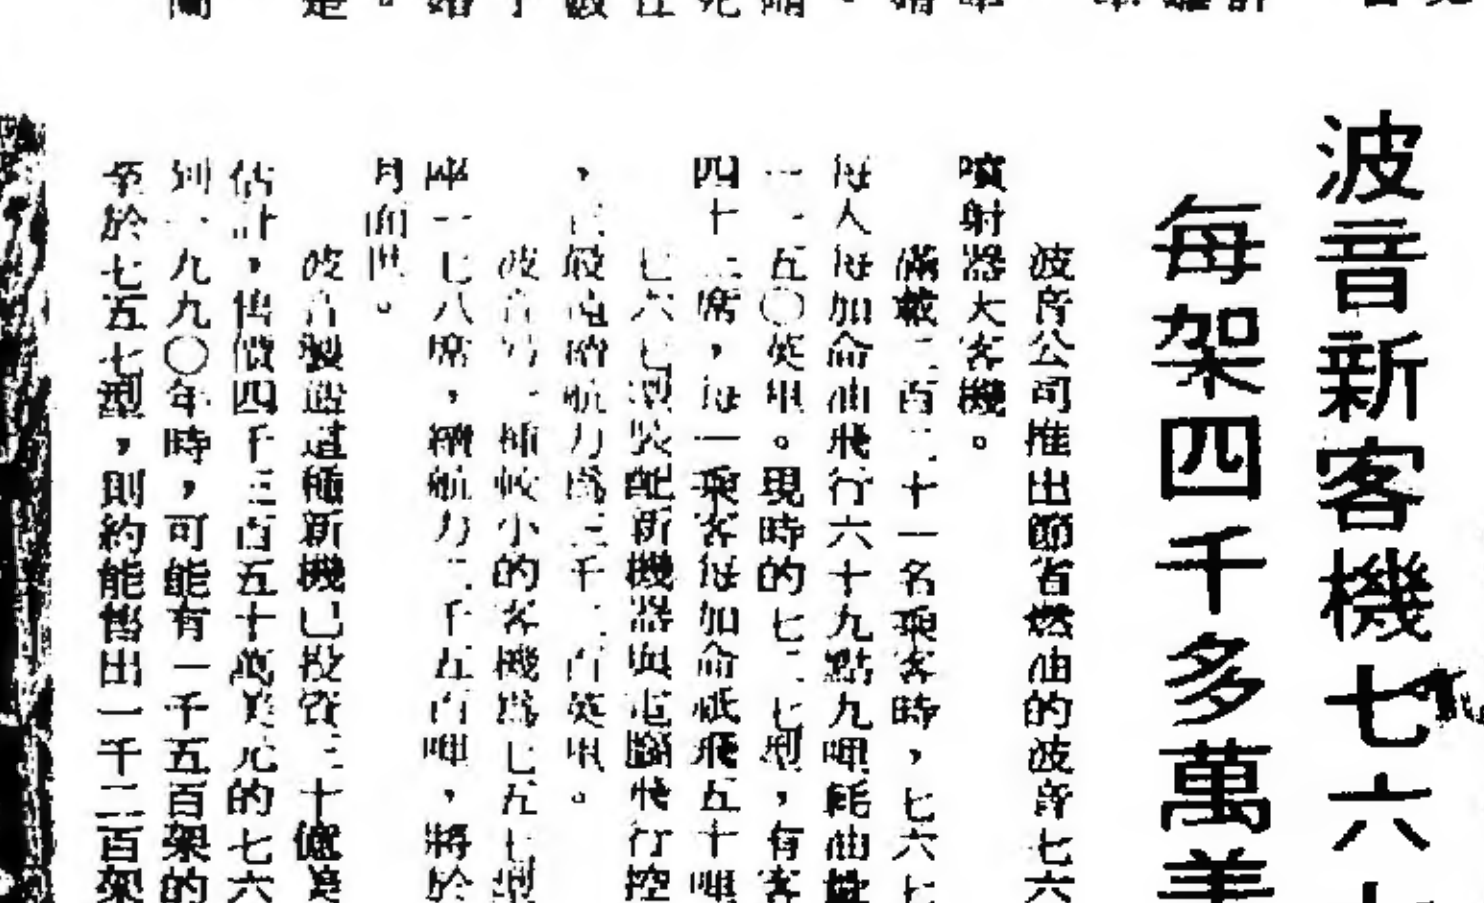 波音新客機七六七
每架四千多萬美
波音公司推出節省燃油的波音七六
噴射器大客機。
滿載二百一十一名乘客時，七六七
每人每加侖油飛行六十九點九哩耗油
一一五〇英里。現時的七二七型，有客
四十二席，每一乘客每加侖祇飛五十哩
七六七型裝配新機器與電腦飛行控
，最遠續航力爲三千二百英里。
波音另一種較小的客機爲七五七型
座一七八席，續航力二千五百哩，將於
月面世。
波音製造這種新機已投資三十億美
估計，售價四千三百五十萬美元的七六
到一九九〇年時，可能有一千五百架的
至於七五七型，則約能售出一千二百架